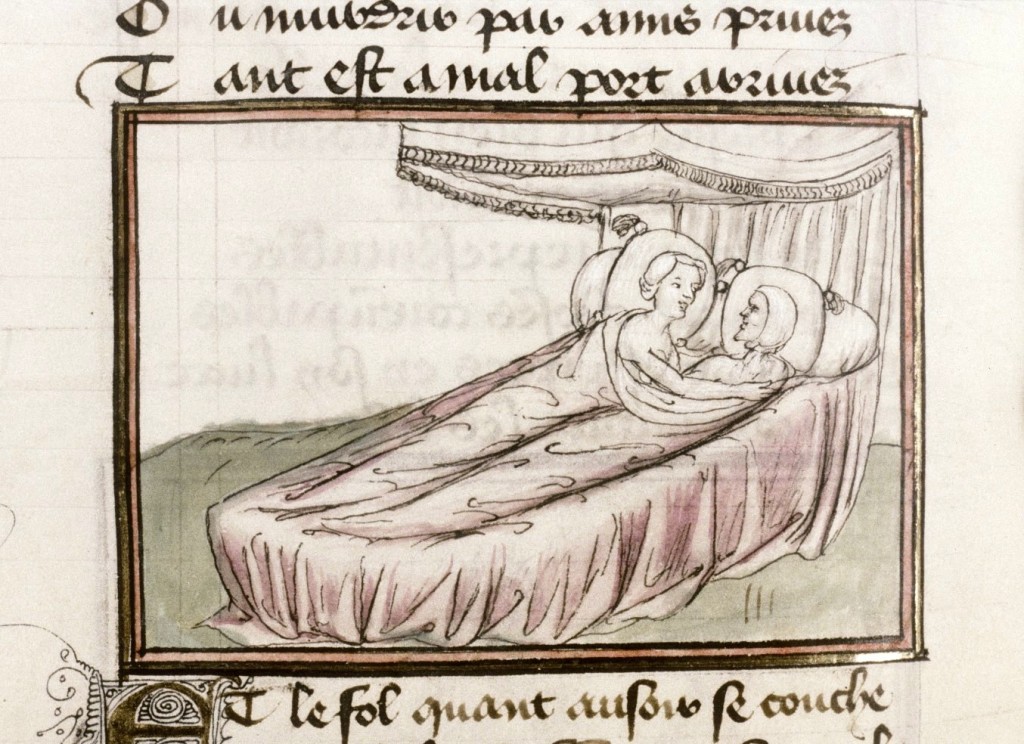 Ou murdris par amis privez
Tant est a mal port arrivez
Et le fol quant au soir se couche